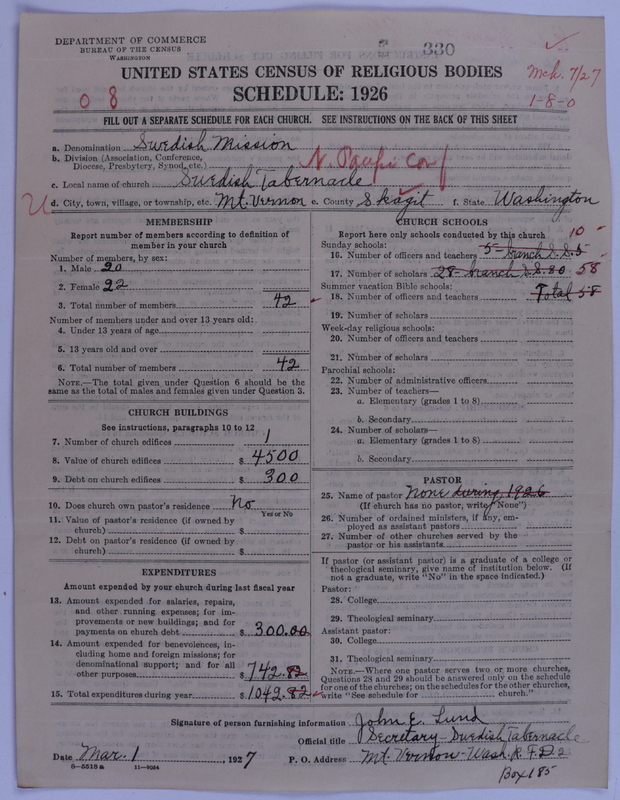 DEPARTMENT OF COMMERCE
BUREAU OF THE CENSUS
WASHINGTON
330
UNITED STATES CENSUS OF RELIGIOUS BODIES
SCHEDULE: 1926
Mch. 7/27
1-8-0
0 8
FILL OUT A SEPARATE SCHEDULE FOR EACH CHURCH. SEE INSTRUCTIONS ON THE BACK OF THIS SHEET
a. Denomination Swedish Mission
b. Division (Association, Conference, Diocese, Presbytery, Synod, etc.) N. Pacific Conf
c. Local name of church Swedish Tabernacle
U d. City, town, village, or township, etc. Mt. Vernon e. County Skagit f. State Washington
MEMBERSHIP
Report number of members according to definition of
member in your church
Number of members, by sex:
1. Male 20
2. Female 22
3. Total number of members 42
Number of members under and over 13 years old:
4. Under 13 years of age
5. 13 years old and over
6. Total number of members 42
NOTE.—The total given under Question 6 should be the
same as the total of males and females given under Question 3.
CHURCH BUILDINGS
See instructions, paragraphs 10 to 12
7. Number of church edifices 1
8. Value of church edifices $ 4500
9. Debt on church edifices $ 300
10. Does church own pastor's residence No
Yes or No
11. Value of pastor's residence (if owned by
church) $
12. Debt on pastor's residence (if owned by
church) $
EXPENDITURES
Amount expended by your church during last fiscal year
13. Amount expended for salaries, repairs,
and other running expenses; for im-
provements or new buildings; and for
payments on church debt $ 300.00
14. Amount expended for benevolences, in-
cluding home and foreign missions; for
denominational support; and for all
other purposes $ 742.82
15. Total expenditures during year $ 1042.82
CHURCH SCHOOLS
Report here only schools conducted by this church
Sunday schools: 10
16. Number of officers and teachers 5-branch S.S. 5
17. Number of scholars 28- branch S.S. 30 58
Summer vacation Bible schools:
18. Number of officers and teachers Total 58
19. Number of scholars
Week-day religious schools:
20. Number of officers and teachers
21. Number of scholars
Parochial schools:
22. Number of administrative officers
23. Number of teachers—
a. Elementary (grades 1 to 8)
b. Secondary
24. Number of scholars—
a. Elementary (grades 1 to 8)
b. Secondary
PASTOR
25. Name of pastor None during 1926
(If church has no pastor, write "None")
26. Number of ordained ministers, if any, em-
ployed as assistant pastors
27. Number of other churches served by the
pastor or his assistants
If pastor (or assistant pastor) is a graduate of a college or
theological seminary, give name of institution below. (If
not a graduate, write "No" in the space indicated.)
Pastor:
28. College
29. Theological seminary
Assistant pastor:
30. College
31. Theological seminary
NOTE.—Where one pastor serves two or more churches,
Questions 28 and 29 should be answered only on the schedule
for one of the churches; on the schedules for the other churches,
write "See schedule for church."
Signature of person furnishing information John E. Lund
Official title Secretary - Swedish Tabernacle
Date Mar. 1, 1927 P. O. Address Mt. Vernon - Wash. R.F.D. 2
Box 185
8—5518a 11—9024